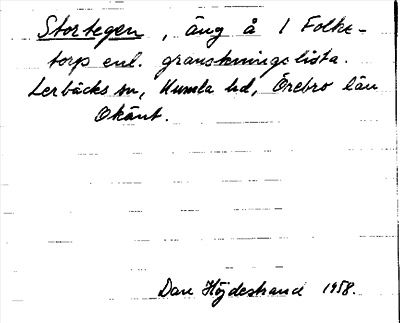 Stortegen, äng å 1 Folke-
torp enl. granskningslista.
Lerbäcks sn, Kumla hd, Örebro län
Okänt.
Dan Höjdestrand 1958.